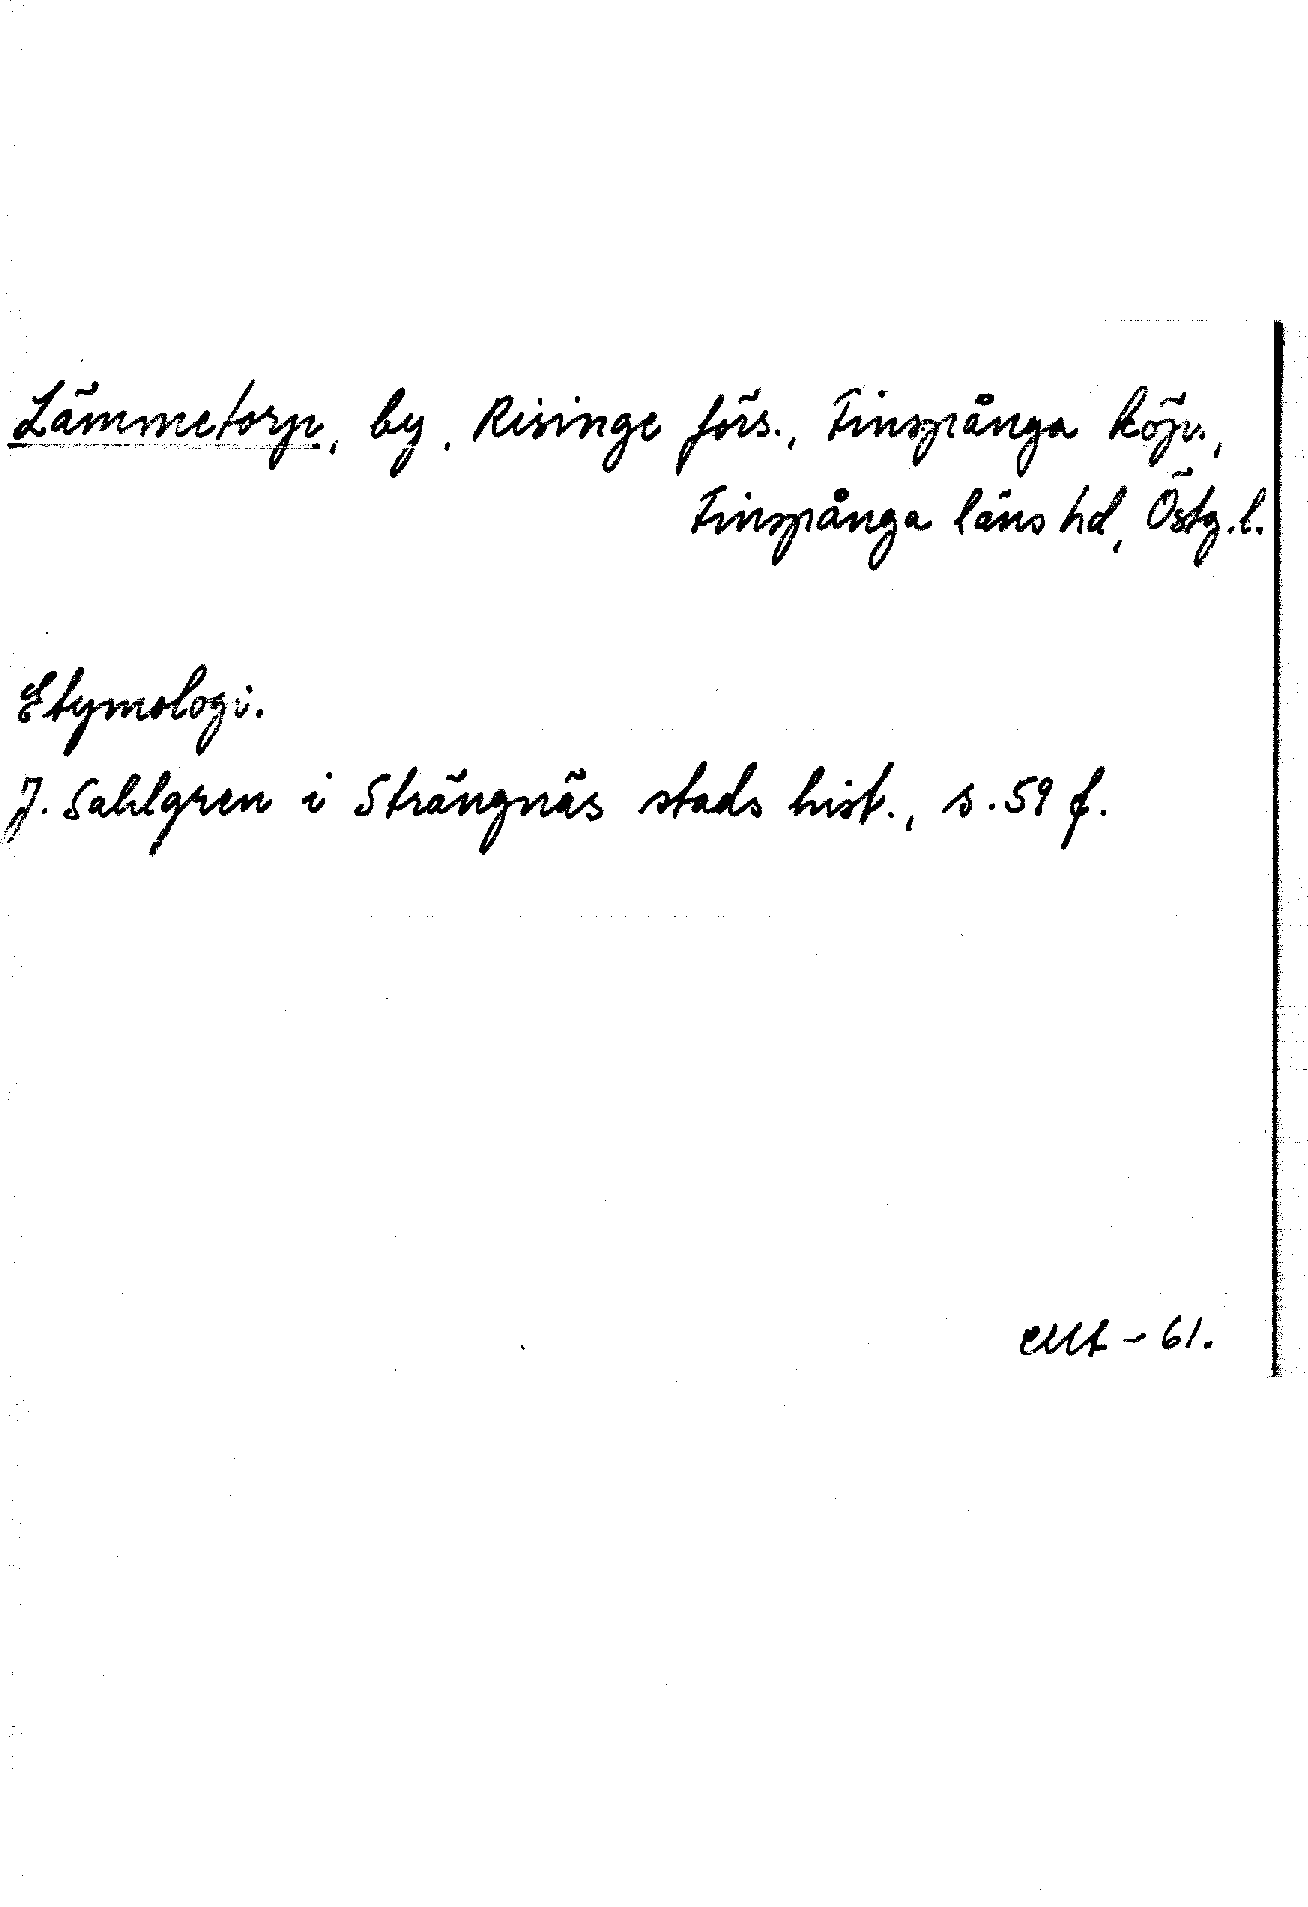 Lämmetorp, by, Risinge förs., Finspånga köp.,
Finspånga läns hd, Östg.l.
Etymologi.
J. Sahlgren i Strängnäs stads hist., s. 59 f.
- 61.